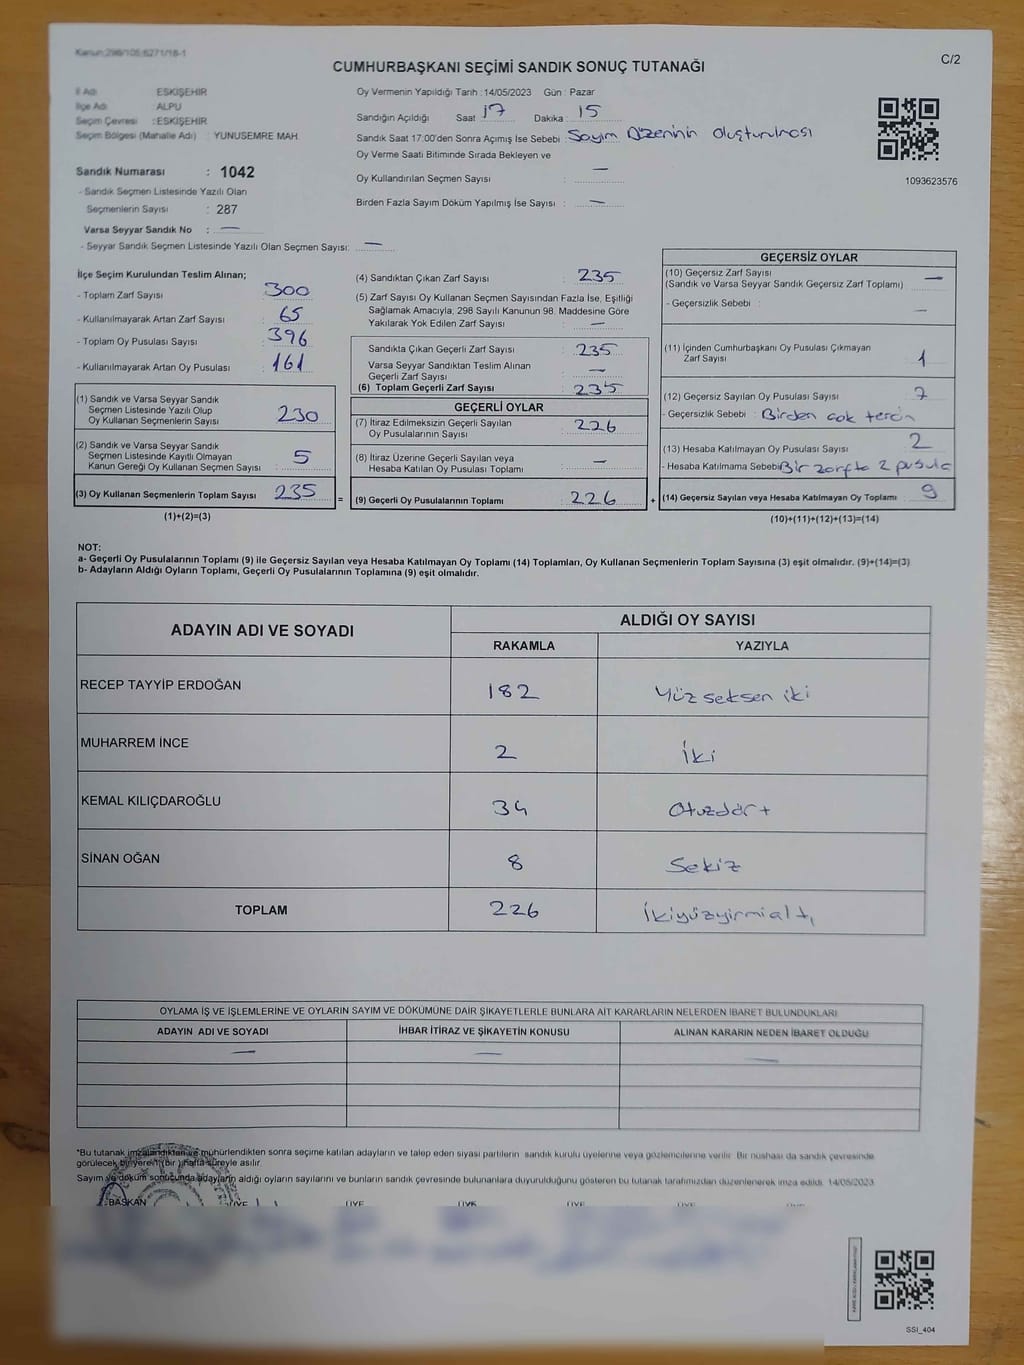 Kanun:298/105;6271/18-1
C/2
CUMHURBAŞKANI SEÇİMİ SANDIK SONUÇ TUTANAĞI
İl Adı : ESKİŞEHİR
İlçe Adı : ALPU
Seçim Çevresi : ESKİŞEHİR
Seçim Bölgesi (Mahalle Adı) : YUNUSEMRE MAH.
Oy Vermenin Yapıldığı Tarih : 14/05/2023 Gün : Pazar
Sandığın Açıldığı Saat : 17 Dakika : 15
Sandık Saat 17:00'den Sonra Açımış İse Sebebi : Sayım Düzeninin oluşturulması
Oy Verme Saati Bitiminde Sırada Bekleyen ve
Oy Kullandırılan Seçmen Sayısı : —
Birden Fazla Sayım Döküm Yapılmış İse Sayısı : —
1093623576
Sandık Numarası : 1042
- Sandık Seçmen Listesinde Yazılı Olan
Seçmenlerin Sayısı : 287
Varsa Seyyar Sandık No : —
- Seyyar Sandık Seçmen Listesinde Yazılı Olan Seçmen Sayısı: —
İlçe Seçim Kurulundan Teslim Alınan;
- Toplam Zarf Sayısı : 300
- Kullanılmayarak Artan Zarf Sayısı : 65
- Toplam Oy Pusulası Sayısı : 396
- Kullanılmayarak Artan Oy Pusulası : 161
(1) Sandık ve Varsa Seyyar Sandık
Seçmen Listesinde Yazılı Olup
Oy Kullanan Seçmenlerin Sayısı : 230
(2) Sandık ve Varsa Seyyar Sandık
Seçmen Listesinde Kayıtlı Olmayan
Kanun Gereği Oy Kullanan Seçmen Sayısı : 5
(3) Oy Kullanan Seçmenlerin Toplam Sayısı : 235
(1)+(2)=(3)
(4) Sandıktan Çıkan Zarf Sayısı : 235
(5) Zarf Sayısı Oy Kullanan Seçmen Sayısından Fazla İse, Eşitliği
Sağlamak Amacıyla, 298 Sayılı Kanunun 98. Maddesine Göre
Yakılarak Yok Edilen Zarf Sayısı : —
Sandıkta Çıkan Geçerli Zarf Sayısı : 235
Varsa Seyyar Sandıktan Teslim Alınan
Geçerli Zarf Sayısı : —
(6) Toplam Geçerli Zarf Sayısı : 235
GEÇERLİ OYLAR
(7) İtiraz Edilmeksizin Geçerli Sayılan : 226
Oy Pusulalarının Sayısı
(8) İtiraz Üzerine Geçerli Sayılan veya : —
Hesaba Katılan Oy Pusulası Toplamı
= (9) Geçerli Oy Pusulalarının Toplamı : 226 +
GEÇERSİZ OYLAR
(10) Geçersiz Zarf Sayısı : —
(Sandık ve Varsa Seyyar Sandık Geçersiz Zarf Toplamı)
- Geçersizlik Sebebi : —
(11) İçinden Cumhurbaşkanı Oy Pusulası Çıkmayan
Zarf Sayısı : 1
(12) Geçersiz Sayılan Oy Pusulası Sayısı : 7
- Geçersizlik Sebebi : Birden çok tercih
(13) Hesaba Katılmayan Oy Pusulası Sayısı : 2
- Hesaba Katılmama Sebebi: Bir zarfta 2 pusula
(14) Geçersiz Sayılan veya Hesaba Katılmayan Oy Toplamı : 9
(10)+(11)+(12)+(13)=(14)
NOT:
a- Geçerli Oy Pusulalarının Toplamı (9) ile Geçersiz Sayılan veya Hesaba Katılmayan Oy Toplamı (14) Toplamları, Oy Kullanan Seçmenlerin Toplam Sayısına (3) eşit olmalıdır. (9)+(14)=(3)
b- Adayların Aldığı Oyların Toplamı, Geçerli Oy Pusulalarının Toplamına (9) eşit olmalıdır.
ADAYIN ADI VE SOYADI
ALDIĞI OY SAYISI
RAKAMLA YAZIYLA
RECEP TAYYİP ERDOĞAN 182 Yüz seksen iki
MUHARREM İNCE 2 İki
KEMAL KILIÇDAROĞLU 34 Otuzdört
SİNAN OĞAN 8 Sekiz
TOPLAM 226 İkiyüzyirmialtı
OYLAMA İŞ VE İŞLEMLERİNE VE OYLARIN SAYIM VE DÖKÜMÜNE DAİR ŞİKAYETLERLE BUNLARA AİT KARARLARIN NELERDEN İBARET BULUNDUKLARI
ADAYIN ADI VE SOYADI İHBAR İTİRAZ VE ŞİKAYETİN KONUSU ALINAN KARARIN NEDEN İBARET OLDUĞU
— — —
*Bu tutanak imzalandıktan ve mühürlendikten sonra seçime katılan adayların ve talep eden siyasi partilerin sandık kurulu üyelerine veya gözlemcilerine verilir. Bir nüshası da sandık çevresinde
görülecek bir yere 1 (Bir) hafta süreyle asılır.
Sayım ve döküm sonucunda adayların aldığı oyların sayılarını ve bunların sandık çevresinde bulunanlara duyurulduğunu gösteren bu tutanak tarafımızdan düzenlenerek imza edildi. 14/05/2023
BAŞKAN ÜYE ÜYE ÜYE ÜYE ÜYE ÜYE
SSI_404